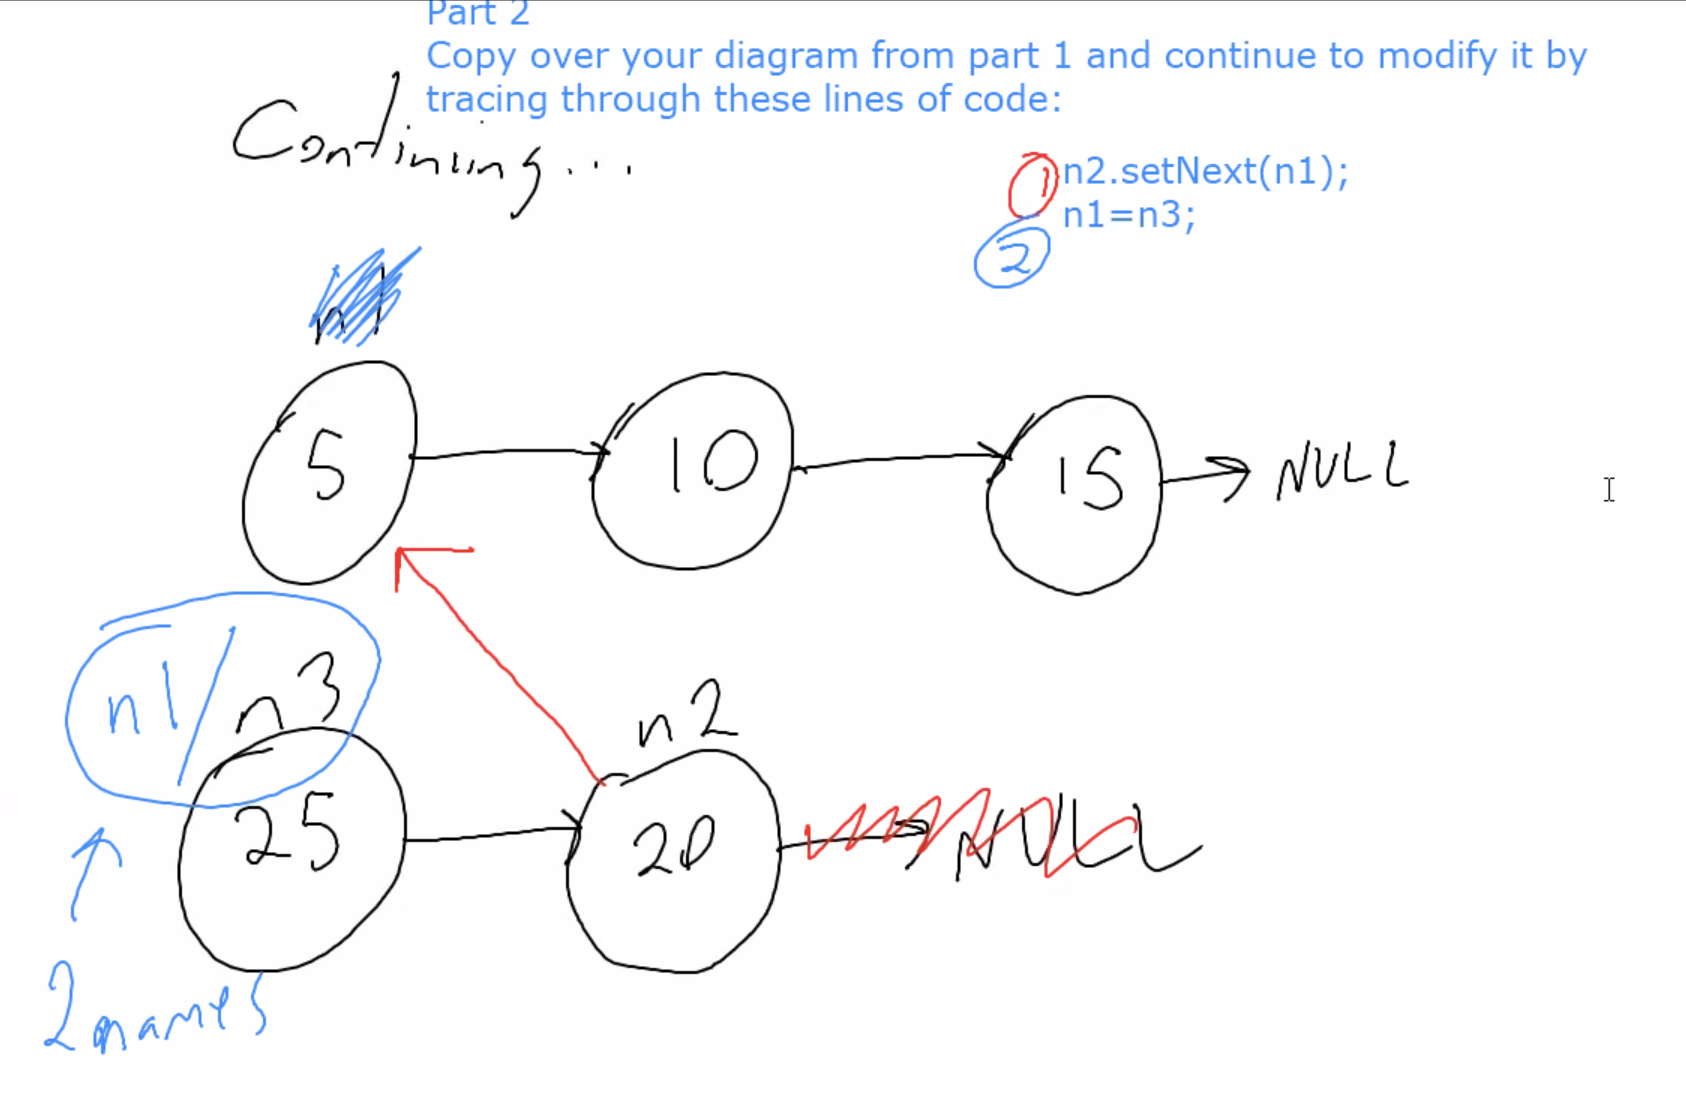 Part 2
Copy over your diagram from part 1 and continue to modify it by
tracing through these lines of code:
Continuing...
1 n2.setNext(n1);
n1=n3;
2
n1
5 10 15 NULL
n1/ n3 n2
25 20 NULL
2 names